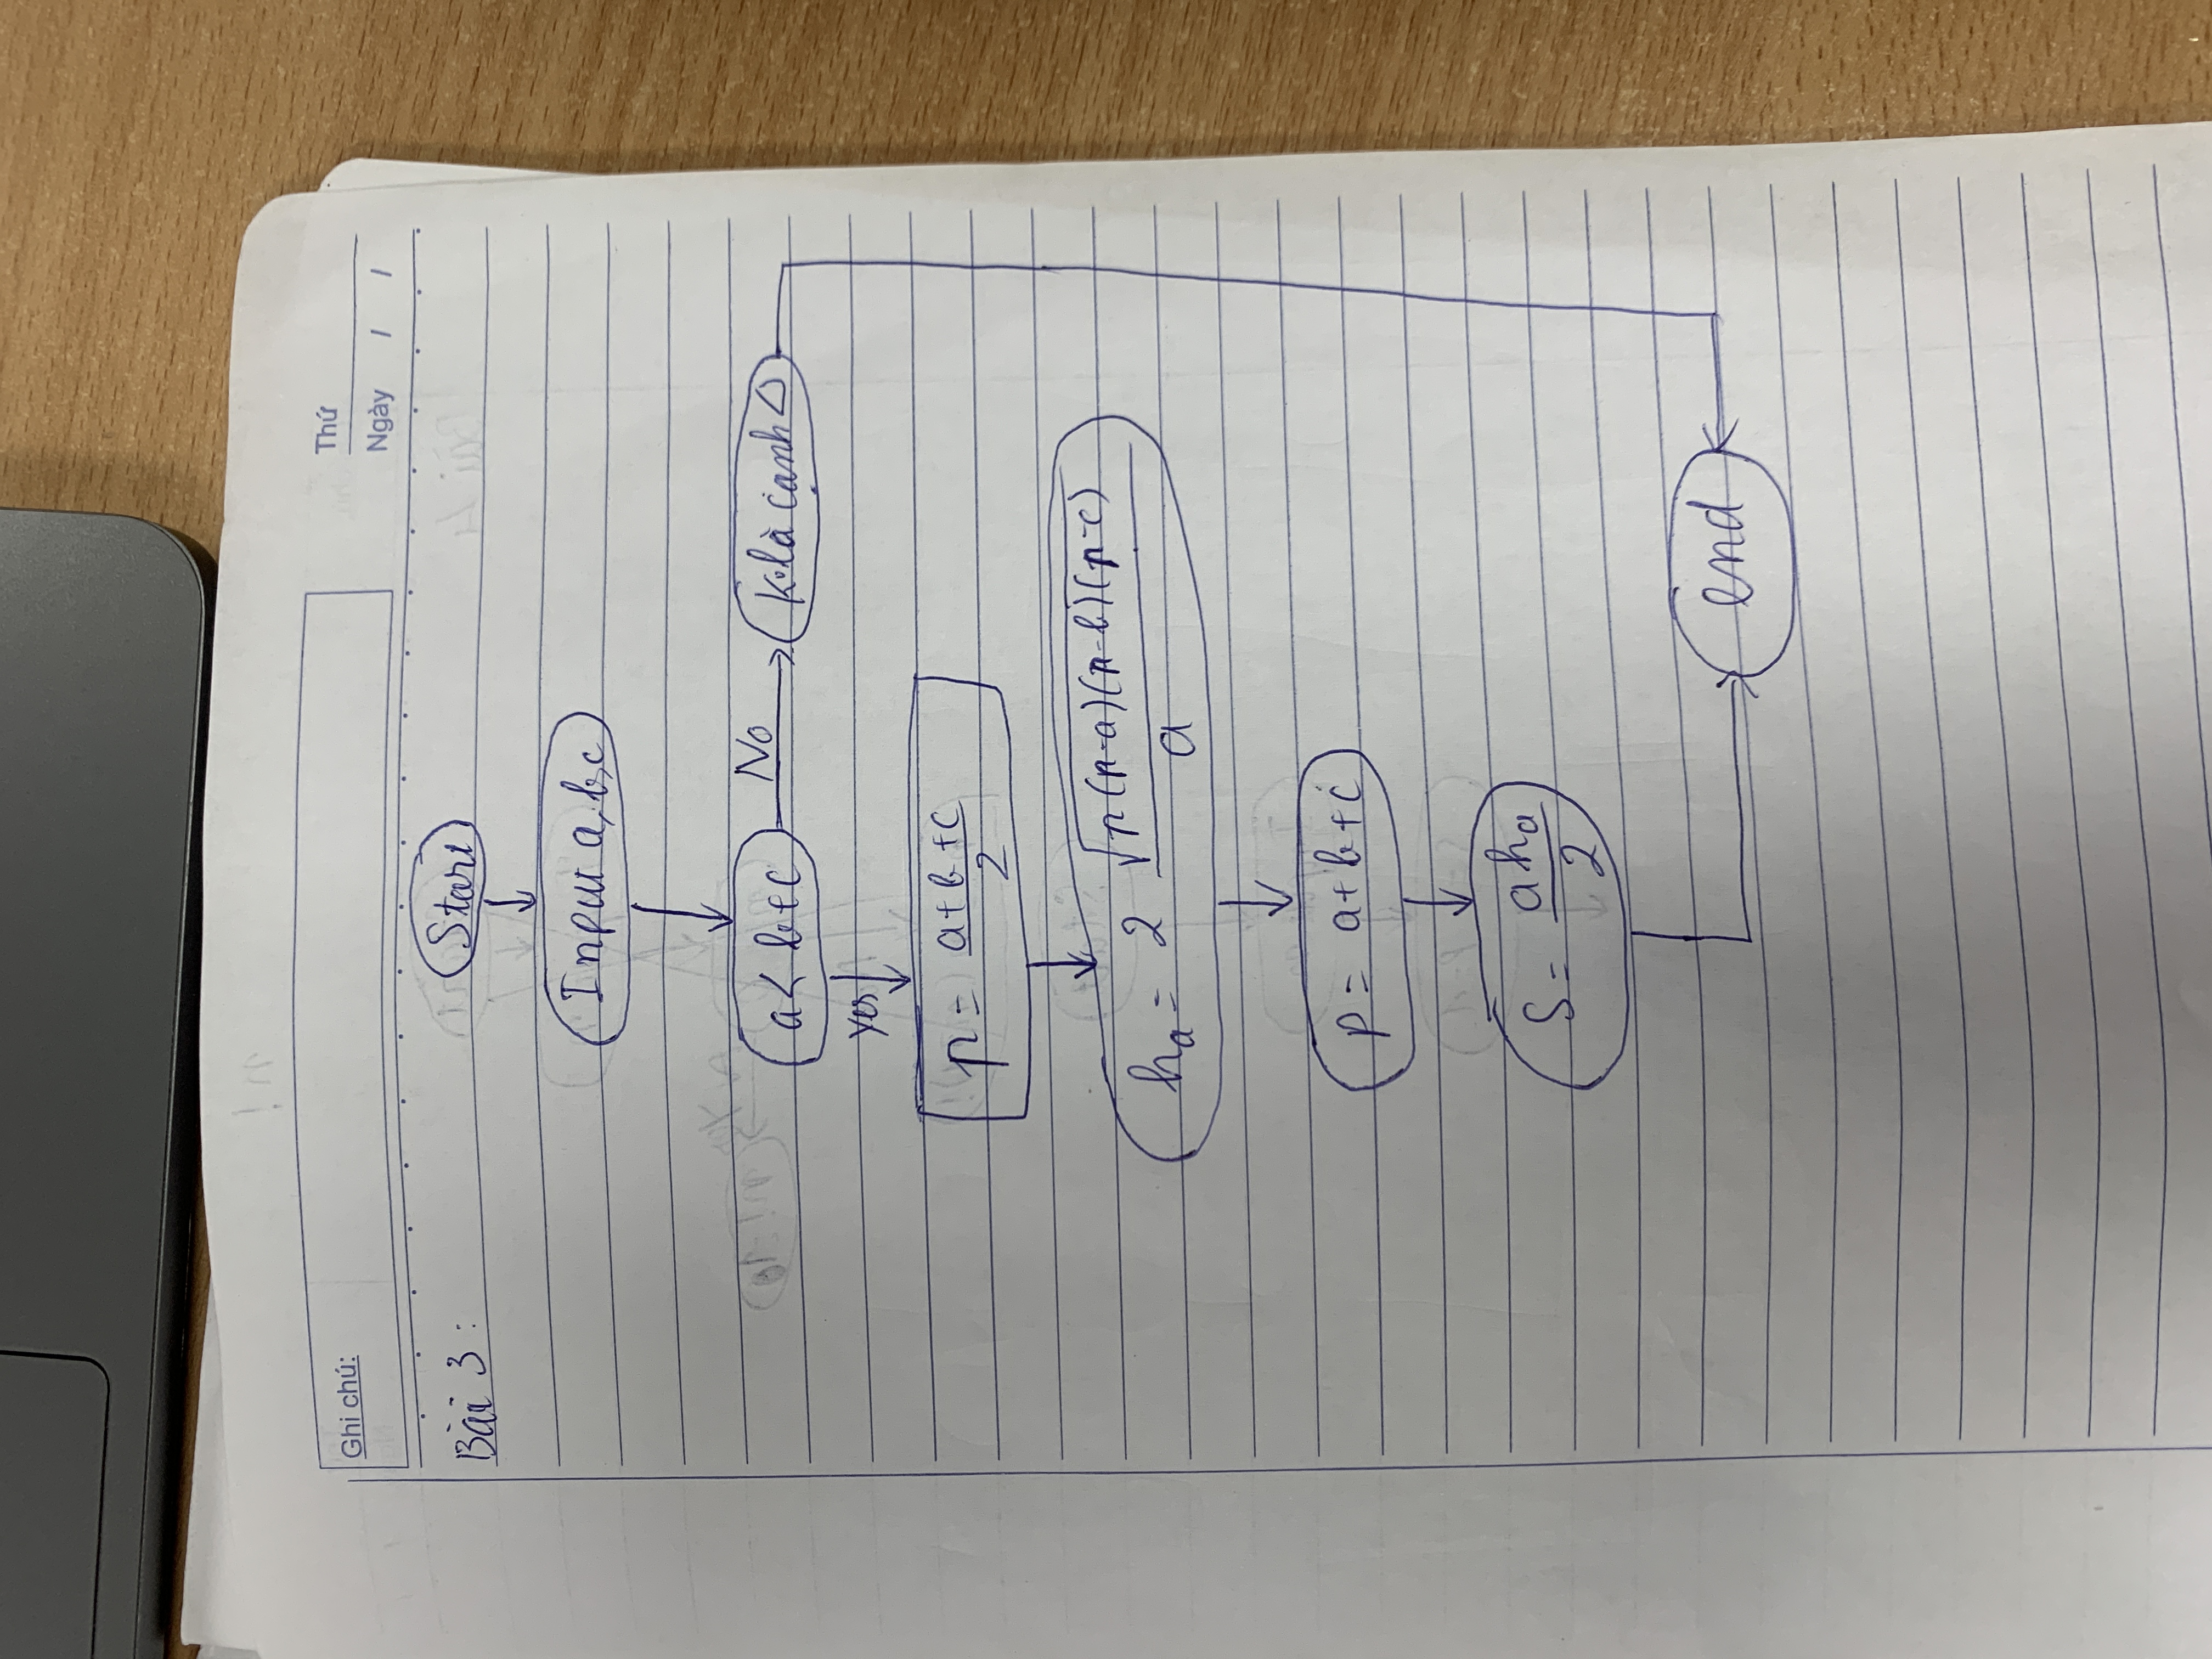 Ghi chú:
Thứ
Ngày / /
Bài 3:
Start
Input a,b,c
a < b+c No K.là cạnh △
yes
p = a+b+c / 2
hₐ = 2 √p(p-a)(p-b)(p-c) / a
P = a+b+c
S = ahₐ / 2
end